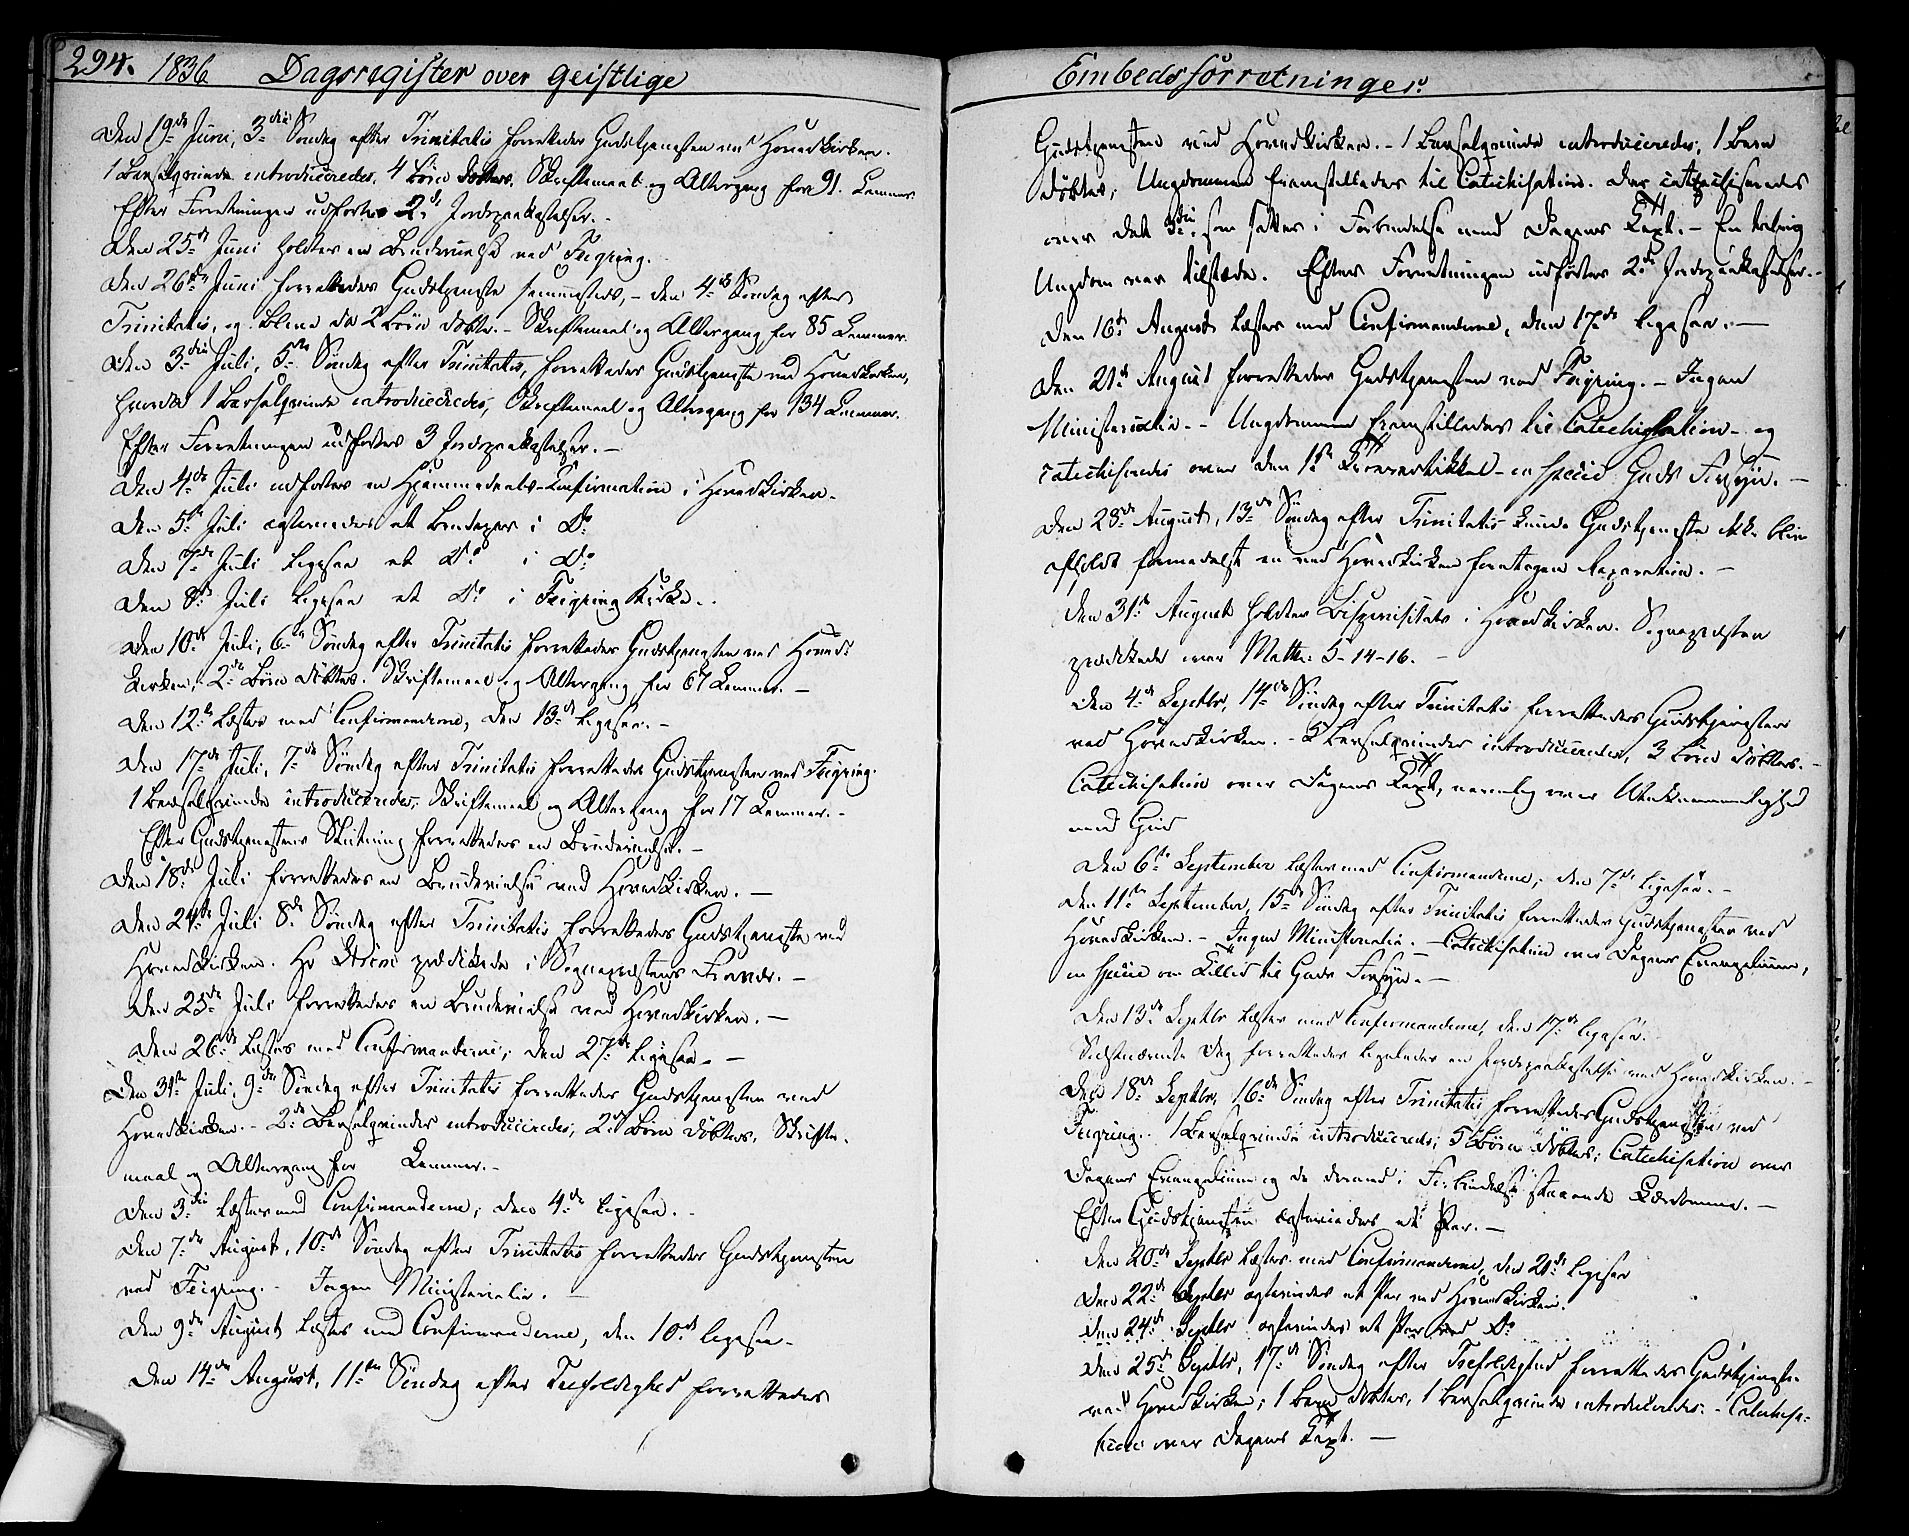 294. 1836 Dagsregister over geistlige
Den 19de Juni, 3die Søndag efter Trinitatis forrettedes Gudstjenesten ved Hovedkirken.
1 Barselqvinde introduceredes, 4 Børn døbtes. Skriftemaal og Altergang for 91 Lemmer.
Efter Forretningen udførtes 2de Jordpaakastelser.
Den 25de Juni holdtes en Brudevielse ved Feiring.
Den 26de Juni forrettedes Gudstjeneste sammesteds, - den 4de Søndag efter
Trinitatis, og bleve da 2 Børn døbte. - Skriftemaal og Altergang for 85 Lemmer.
Den 3die Juli, 5te Søndag efter Trinitatis, forrettedes Gudstjeneste ved Hovedkirken,
hvorda 1 Barselqvinde introduceredes, Skriftemaal og Altergang for 134 Lemmer.
Efter Forretningen udførtes 3 Jordpaakastelser. -
Den 4de Juli udførtes en Hjemmedaabs-Confirmation i Hovedkirken.
Den 5te Juli egteviedes et Brudepar i Do
Den 7de Juli ligesaa et Do i Do
Den 8de Juli ligesaa et Do i Feiring Kirke.
Den 10de Juli, 6te Søndag efter Trinitatis forrettedes Gudstjenesten ved Hoved-
Kirken, 2de Børn døbtes. Skriftemaal og Altergang for 67 Lemmer. -
Den 12te læstes med Confirmanderne, den 13de ligesaa. -
Den 17de Juli, 7de Søndag efter Trinitatis forrettedes Gudstjenesten ved Feiring.
1 Barselqvinde introduceredes, Skriftemaal og Altergang for 17 Lemmer. -
Efter Gudstjenestens Slutning forrettedes en Brudevielse. -
Den 18de Juli forrettedes en Brudevielse ved Hovedkirken. -
Den 24de Juli 8de Søndag efter Trinitatis forrettedes Gudstjeneste ved
Hovedkirken. Hr prædikede i Sognepræstens Fravær. -
Den 25de Juli forrettedes en Brudevielse ved Hovedkirken. -
Den 26de læstes med Confirmanderne, den 27de ligesaa. -
Den 31te Juli, 9de Søndag efter Trinitatis forrettedes Gudstjenesten ved
Hovedkirken. - 2de Barselqvinder introduceredes, 2de Børn døbtes, Skrifte-
maal og Altergang for Lemmer. -
Den 3die læstes med Confirmanderne, den 4de ligesaa. -
Den 7de August, 10de Søndag efter Trinitatis forrettedes Gudstjenesten
ved Feiring. - Ingen Ministerialia. -
Den 9de August læstes med Confirmanderne, den 10de ligesaa. -
Den 14de August, 11te Søndag efter Trefoldighed forrettedes
Embedsforretninger.
Gudstjenesten ved Hovedkirken. - 1 Barselqvinde introduceredes, 1 Barn
døbtes, Ungdommen fremstilledes til Catechisation. Der catechiseredes
over det 3die som sattes i Forbindelse med Dagens Text. - En talrig
Ungdom var tilstæde. Efter Forretningen udførtes 2de Jordpaakastelser. -
Den 16de August læstes med Confirmanderne, den 17de ligesaa. -
Den 21de August forrettedes Gudstjenesten ved Feiring. - Ingen
Ministerialia. - Ungdommen fremstilledes til Catechisation - og
catechiseredes over den 1ste Troesartikkel - in specie Guds Forsyn. -
Den 28de August, 13de Søndag efter Trinitatis kunde Gudstjeneste ikke blive
afholdt formedelst en ved Hovedkirken foretagen Reparation. -
Den 31te August holdtes Bispevisitats i Hovedkirken. Sognepræsten
prædikede over Matth: 5-14-16. -
Den 4de Septbr, 14de Søndag efter Trinitatis forrettedes Gudstjenesten
ved Hovedkirken. - 2 Barselqvinder introduceredes, 3 Børn døbtes. -
Catechisation over Dagens Text, navnlig over Utaknemmelighed
mod Gud
Den 6te September læstes med Confirmanderne, den 7de ligesaa. -
Den 11te September, 15de Søndag efter Trinitatis forrettedes Gudstjenesten ved
Hovedkirken. - Ingen Ministerialia. - Catechisation over Dagens Evangelium,
in specie om Tillid til Guds Forsyn. -
Den 13de Septbr læstes med Confirmanderne, den 17de ligesaa.
Sidstnævnte Dag forrettedes ligeledes en Jordpaakastelse ved Hovedkirken. -
Den 18de Septbr, 16de Søndag efter Trinitatis forrettedes Gudstjenesten ved
Feiring. 1 Barselqvinde introduceredes, 5 Børn døbtes; Catechisation over
Dagens Evangelium og de dermed i Forbindelse staaende Lærdomme. -
Efter Gudstjenesten egteviedes et Par. -
Den 20de Septbr læstes med Confirmanderne, den 21de ligesaa
Den 22de Septbr egteviedes et Par ved Hovedkirken.
Den 24de Septbr egteviedes et Par ved Do
Den 25de Septbr, 17de Søndag efter Trefoldighed forrettedes Gudstjeneste
ved Hovedkirken; 1 Barn døbtes, 1 Barselqvinde introduceredes. - Catechisa-
tion over Dagens Text. -